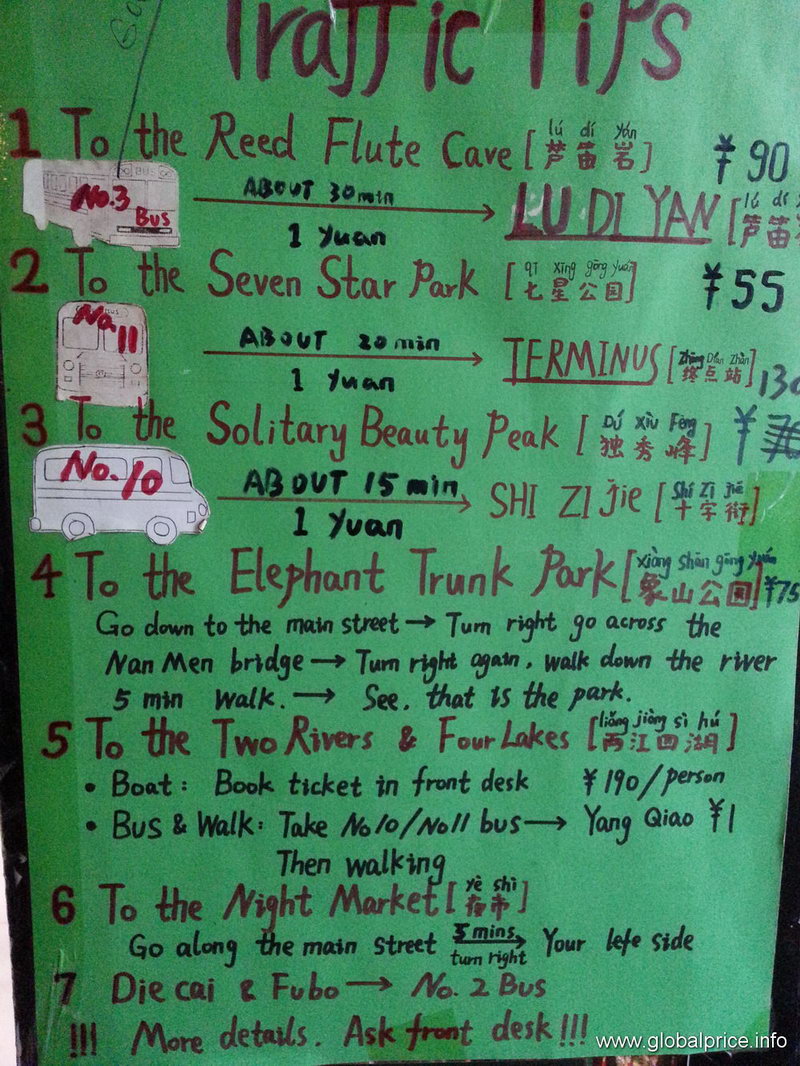 Traffic Tips
1 To the Reed Flute Cave [芦笛岩] ¥90
lú dí yán
No.3 Bus
ABOUT 30 min
1 Yuan
LU DI YAN [芦笛
lú dí
2 To the Seven Star Park [七星公园] ¥55
qī xīng gōng yuán
No. 11
ABOUT 20 min
1 Yuan
TERMINUS [终点站]
Zhōng Diǎn Zhàn
130
3 To the Solitary Beauty Peak [独秀峰] ¥
Dú Xiù Fēng
No. 10
ABOUT 15 min
1 Yuan
SHI ZI Jie [十字街]
Shí Zì Jiē
4 To the Elephant Trunk Park [象山公园] ¥75
xiàng shān gōng yuán
Go down to the main street → Turn right go across the
Nan Men bridge → Turn right again, walk down the river
5 min walk. → See, that is the park.
5 To the Two Rivers & Four Lakes [两江四湖]
liǎng jiāng sì hú
• Boat: Book ticket in front desk ¥190/person
• Bus & Walk: Take No10/No11 bus → Yang Qiao ¥1
Then walking
6 To the Night Market [夜市]
yè shì
Go along the main street 5 mins → turn right Your lefe side
7 Die cai & Fubo → No. 2 Bus
!!! More details. Ask front desk!!!
www.globalprice.info